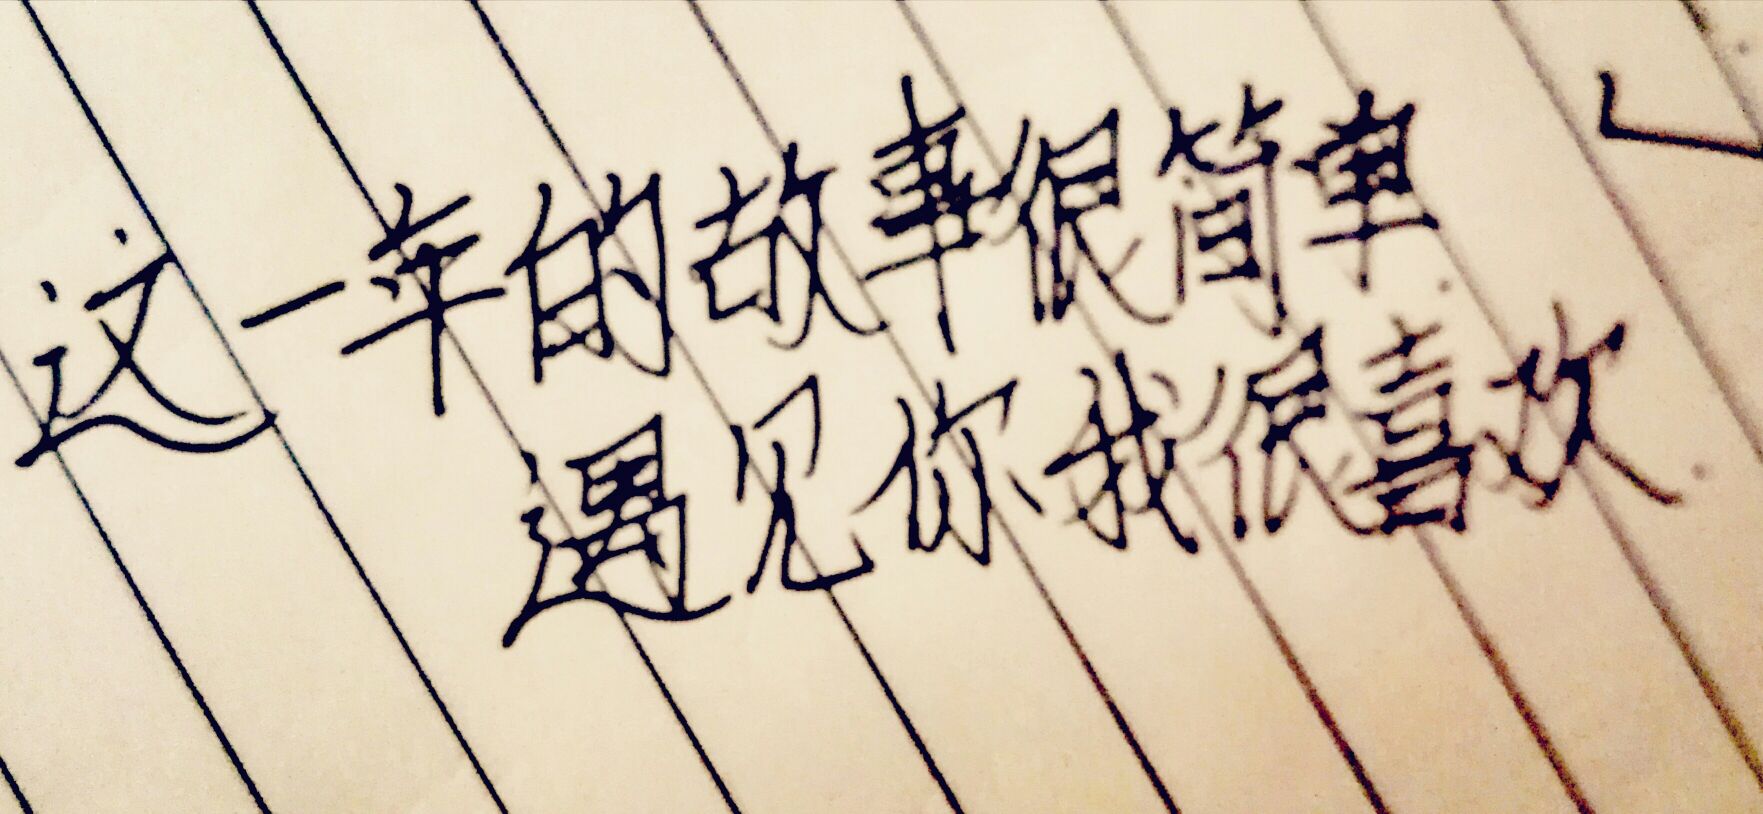 这一年的故事很简单
遇见你我很喜欢